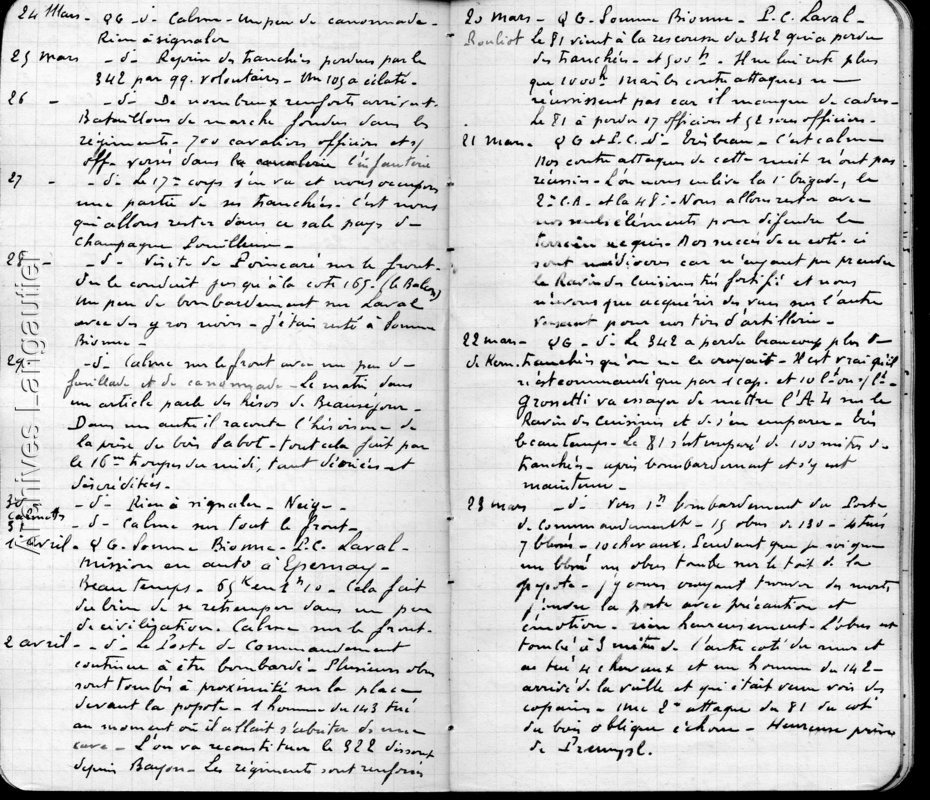 24 Mars - QG - d - Calme - Un peu de canonnade -
Rien à signaler
25 mars - d - Reprise des tranchées perdues par le
342 par qq. volontaires - Un 105 a éclaté -
26 - - d - De nombreux renforts arrivent -
Bataillons de marche fondus dans les
régiments - 700 cavaliers officiers et s/
off - versés dans la cavalerie l'infanterie
27 - - d - Le 17me corps s'en va et nous occupons
une partie de ses tranchées - C'est nous
qui allons rester dans ce sale pays de
Champagne Pouilleuse -
28 - - d - Visite de Poincaré sur le front -
On le conduit jusqu'à la cote 165 - (le Balcon)
Un peu de bombardement sur Laval
avec des gros noirs - J'étais resté à Somme
Bionne -
29 - d - Calme sur le front avec un peu de
fusillade et de canonnade - Le matin dans
un article parle des héros de Beauséjour -
Dans un autre il raconte l'héroïsme de
la prise du bois Sabot - tout cela fait par
le 16me troupes du midi, tant décriées et
discréditées -
30 - d - Rien à signaler - Neige -
Calmettes
31 - d - Calme sur tout le front -
1er avril - QG - Somme Bionne - P.C. Laval -
Mission en auto à Epernay -
Beau temps - 65K en 1h10 - Cela fait
du bien de se retremper dans un peu
de civilisation. Calme sur le front -
2 avril - - d - Le Poste de Commandement
continue à être bombardé - Plusieurs obus
sont tombés à proximité sur la place
devant la popote - 1 homme du 143 tué
au moment où il allait s'abriter dans une
cave - L'on va reconstituer le 322 dissous
depuis Bayon - Les régiments sont renforcés
20 mars - QG - Somme Bionne - P.C. Laval -
Rouliot le 81 vient à la rescousse du 342 qui a perdu
des tranchées - et 500h - Il ne lui reste plus
que 1000h. Mais les contre attaques ne
réussissent pas car il manque de cadres -
Le 81 a perdu 17 officiers et 52 sous officiers -
21 Mars - QG et P.C. - d - Très beau - C'est calme
Nos contre attaques de cette nuit n'ont pas
réussies - L'on nous enlève la 1e brigade, le
2me C.A. - et la 48e - Nous allons rester avec
nos seuls éléments pour défendre le
terrain acquis - Nos succès de ce côté - ci
sont médiocres car n'ayant pu prendre
le Ravin des Cuisines très fortifié et nous
n'avons que acquéris des vues sur l'autre
versant pour nos tirs d'artillerie -
22 mars - QG - d - Le 342 a perdu beaucoup plus de
de Kern. tranchées qu'on ne le croyait - Il est vrai qu'il
n'est commandé que par 1 cap. et 10 lt - ou s/lt -
Grossetti va essayer de mettre l'A 4 sur le
Ravin des Cuisines et de s'en emparer - Très
beau temps - Le 81 s'est emparé de 100 mètres de
tranchées - après bombardement et s'y est
maintenu -
23 mars - d - Vers 1h bombardement du Poste
de Commandement - 15 obus de 130 - 4 tués
7 blessés - 10 chevaux. Pendant que je soigne
un blessé un obus tombe sur le toit de la
popote - j'y cours croyant trouver des morts
j'ouvre la porte avec précaution et
émotion - rien heureusement - L'obus est
tombé à 3 mètres de l'autre coté du mur et
a tué 4 chevaux et un homme du 142 -
arrivé de la veille et qui était venu voir des
copains - Une 2e attaque du 81 du coté
du bois oblique échoue - Heureuse prise
de Przemysl.
Archives Langautier